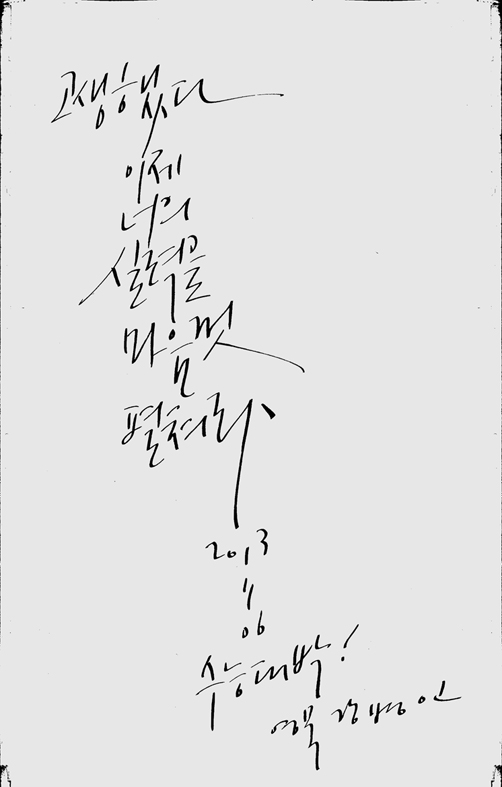 고생했다
이제
너의
실력을
마음껏
펼쳐라
2013
11
06
수능대박!
영묵 강병인